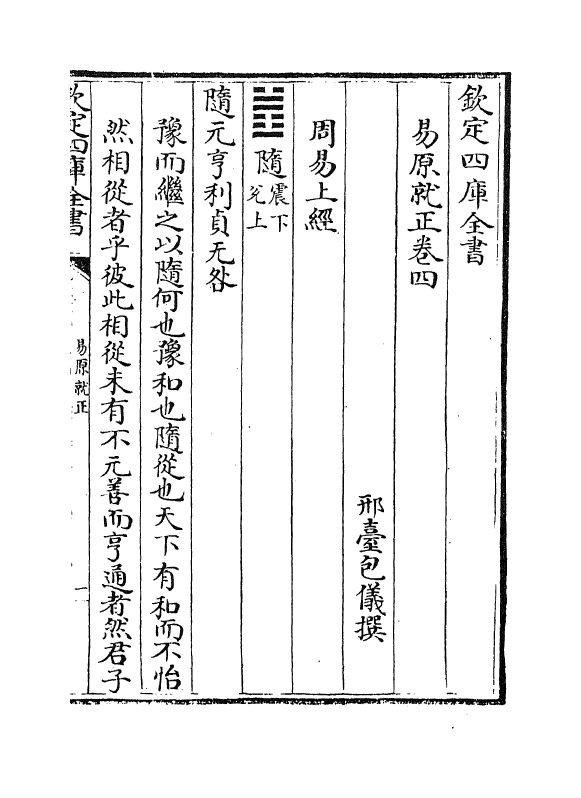 欽定四庫全書
易原就正卷四
邢臺包儀撰
周易上經
䷐隨震下兌上
隨元亨利貞无咎
豫而繼之以隨何也豫和也隨從也天下有和而不怡
然相從者乎彼此相從未有不元善而亨通者然君子
欽定四庫全書
易原就正
一